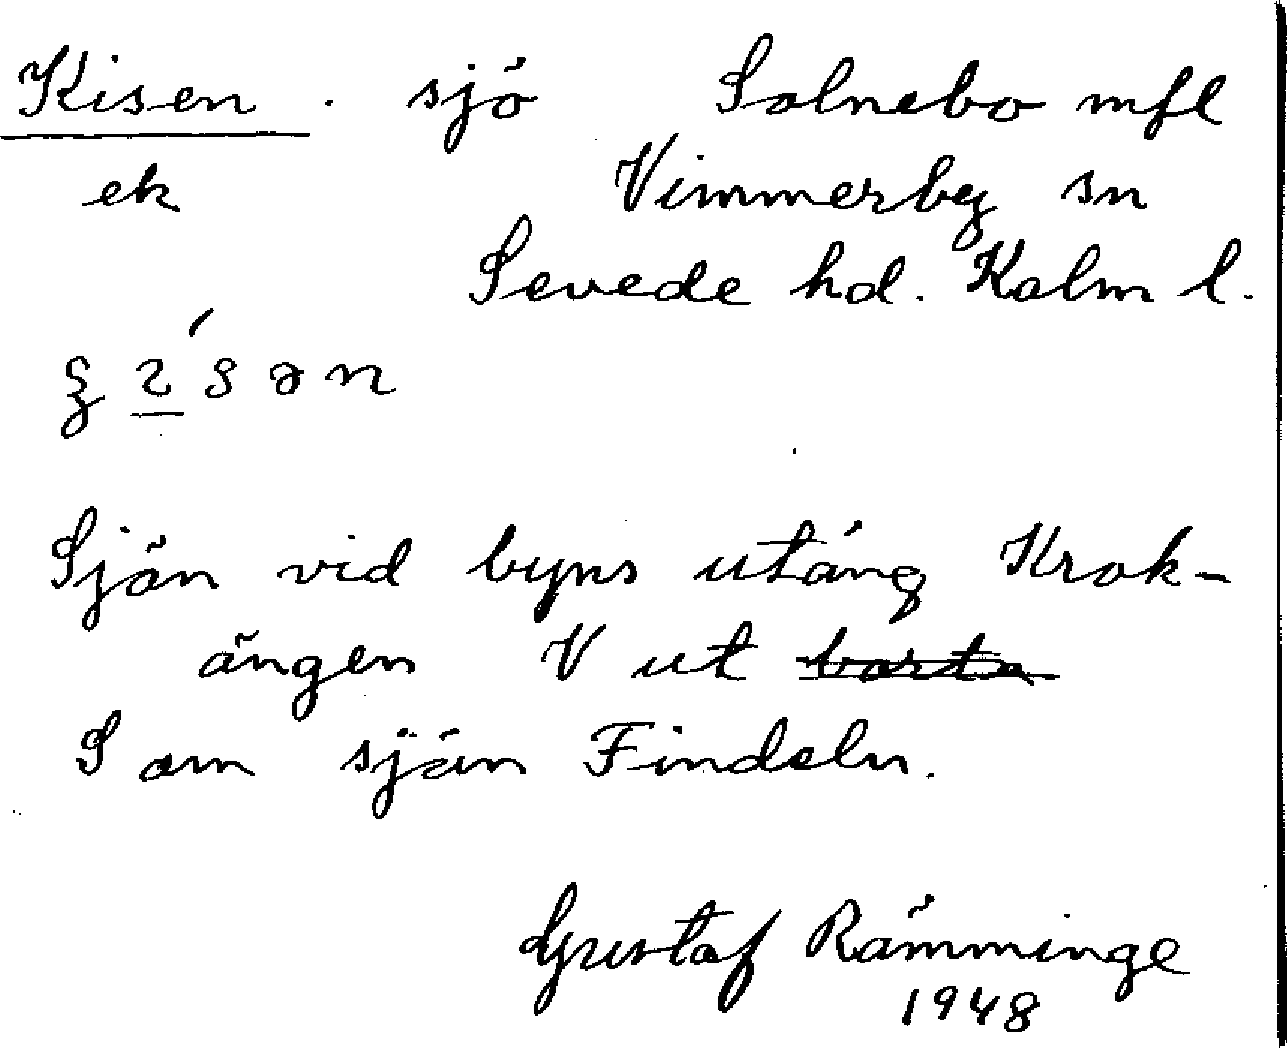 Kisen . sjö Solnebo mfl
ek Vimmerby sn
Sevede hd. Kalm l.
Sjön vid byns utäng Krok-
ängen V ut borta
S om sjön Findeln.
Gustaf Rämminge
1948